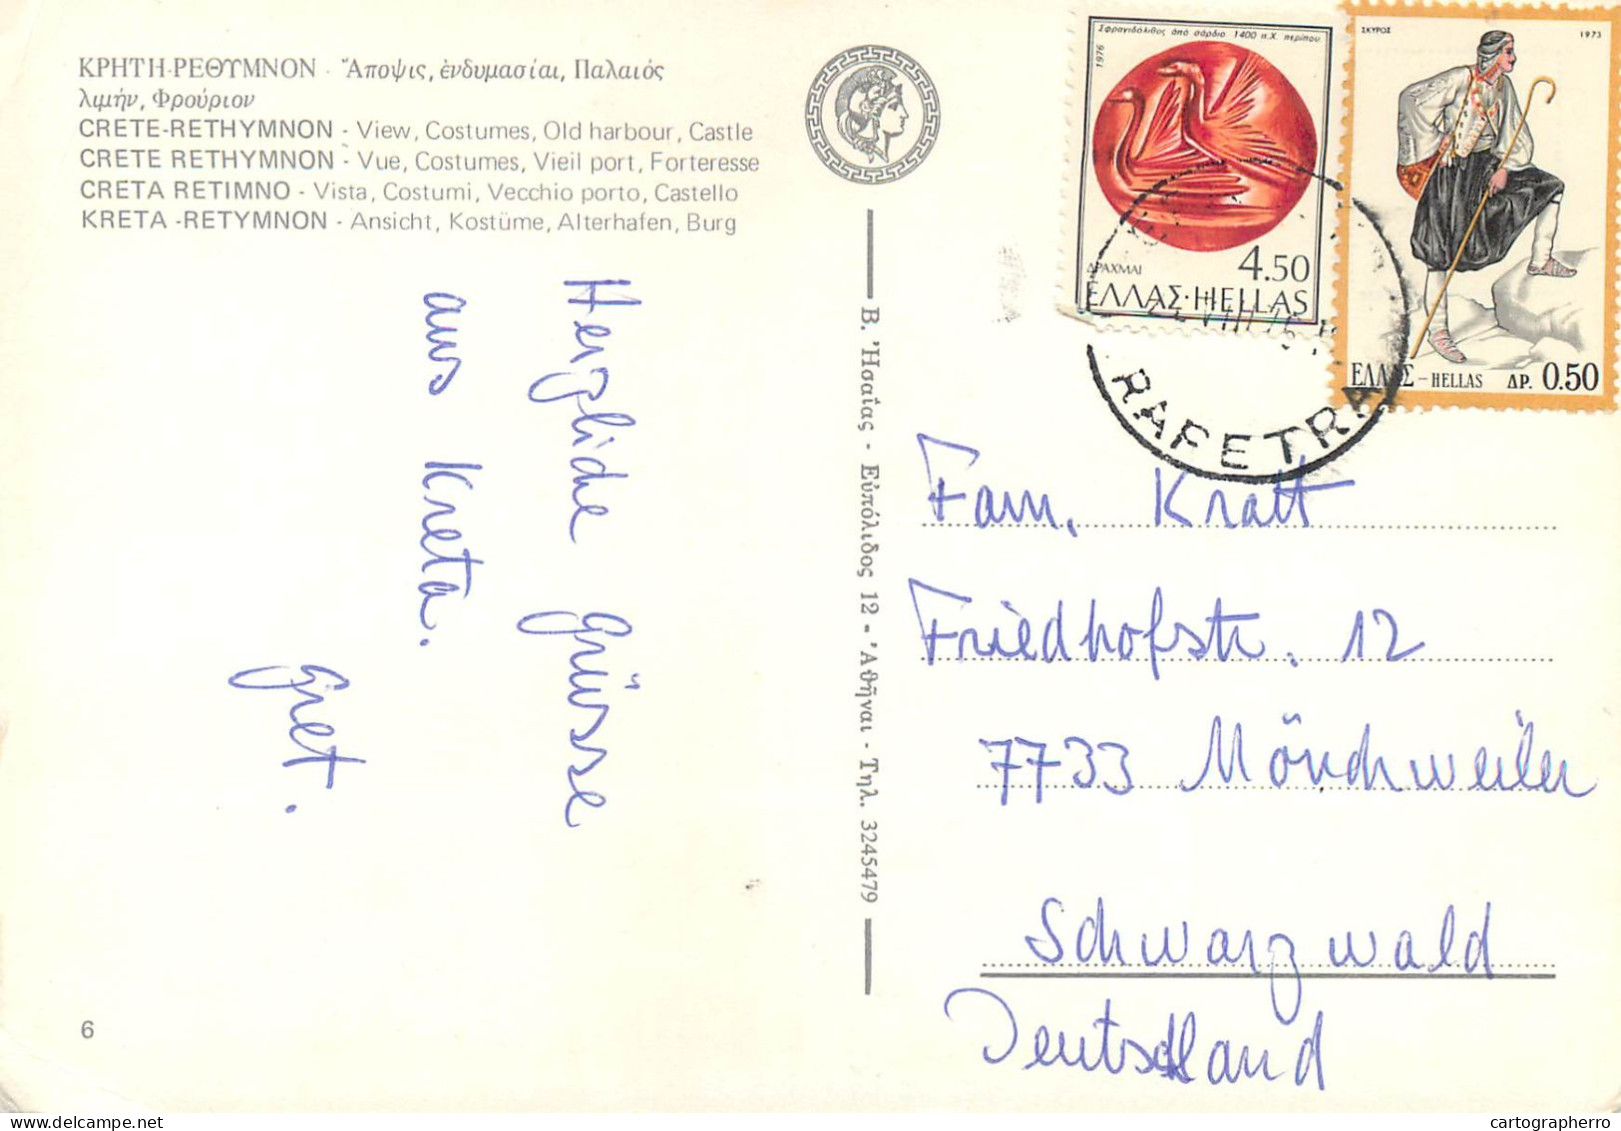 ΚΡΗΤΗ-ΡΕΘΥΜΝΟΝ - Ἄποψις, ἐνδυμασίαι, Παλαιός
λιμήν, Φρούριον
CRETE-RETHYMNON - View, Costumes, Old harbour, Castle
CRETE RETHYMNON - Vue, Costumes, Vieil port, Forteresse
CRETA RETIMNO - Vista, Costumi, Vecchio porto, Castello
KRETA -RETYMNON - Ansicht, Kostüme, Alterhafen, Burg
Herzliche Grüsse
aus Kreta.
Gret.
6
Β. Ἡσαΐας - Εὐπόλιδος 12 - Ἀθῆναι - Τηλ. 3245479
Σφραγιδόλιθος ἀπό σάρδιο 1400 π.Χ. περίπου
1976
4.50
ΔΡΑΧΜΑΙ
ΕΛΛΑΣ·HELLAS
ΣΚΥΡΟΣ 1973
ΕΛΛΑΣ - HELLAS ΔΡ. 0.50
VIII 76
RAFETRA
Fam. Kratt
Friedhofstr. 12
7733 Mönchweiler
Schwarzwald
Deutschland
cartographerro